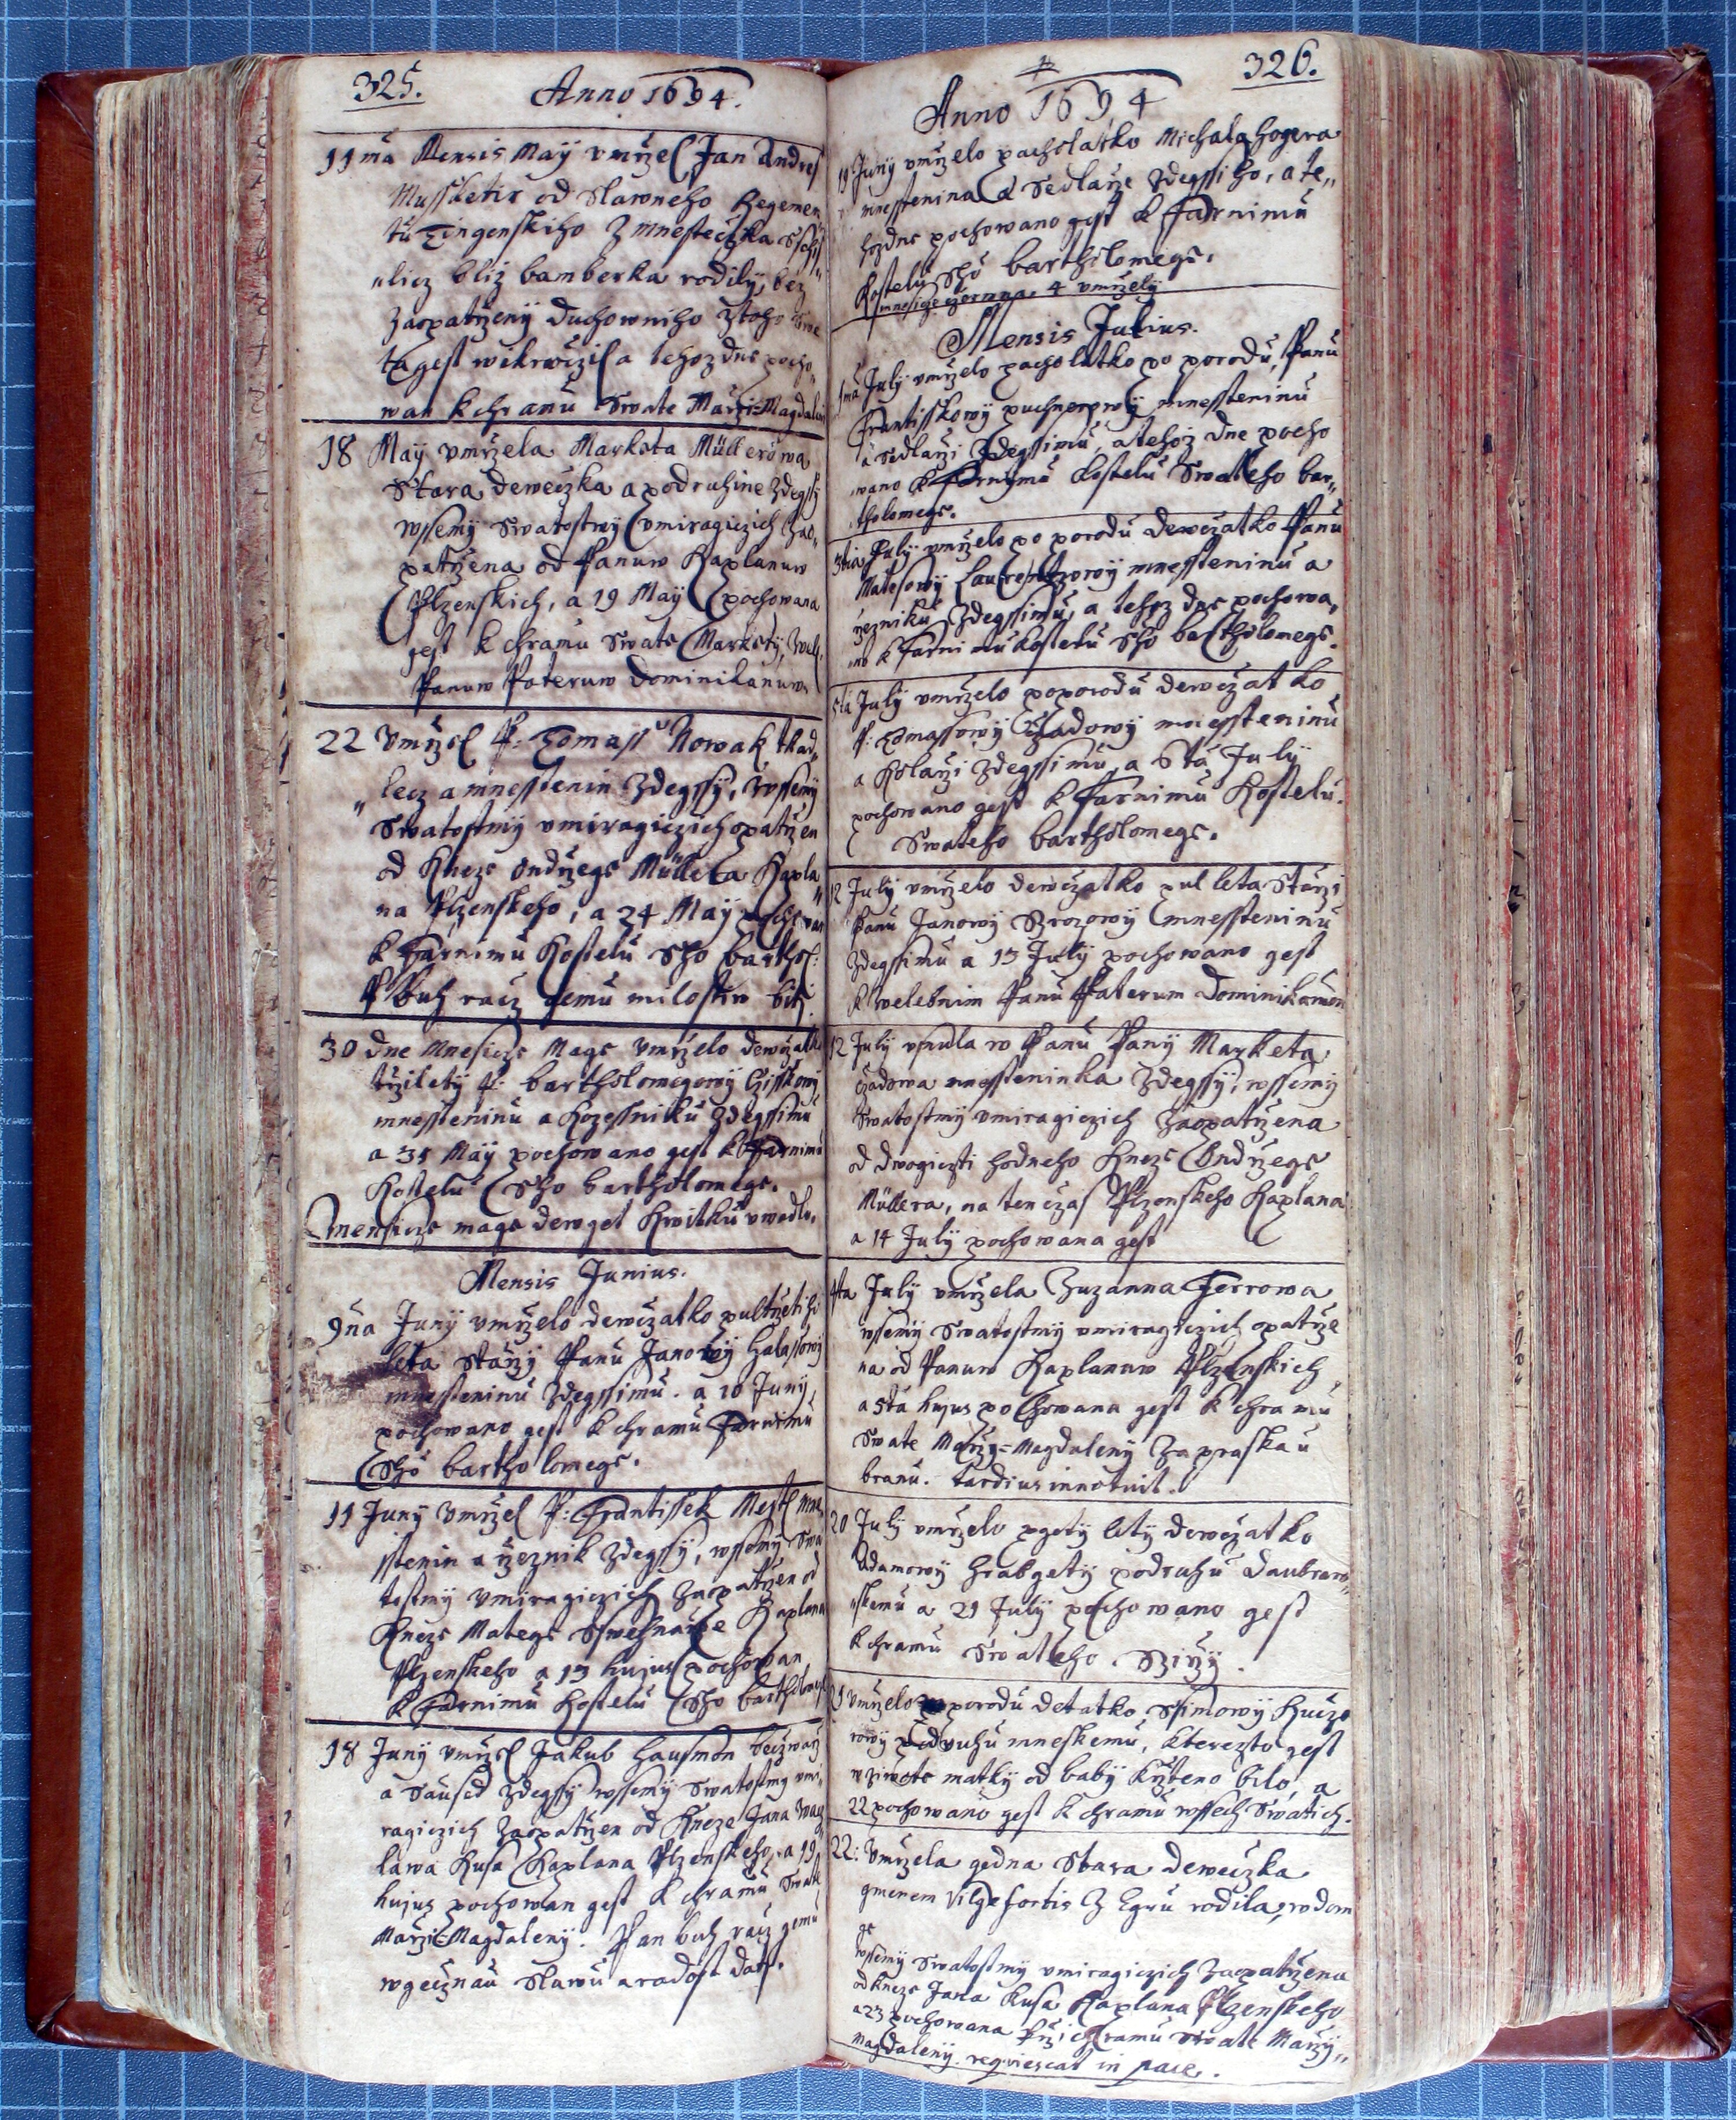 325.
Anno 1694.
11 ma Mensis Maÿ vmržel Jan Andres
Mussketir od Slawneho Regemen„
tu Tingenskiho z mnestečzka
„licz bliz bamberka rodilÿ, bez
Zaopatrzenÿ duchowniho ztoho swe
ta gest wikrwčzil a tehoz dne pocho„
wan k chramu Swate Marži=Magdaleni
18 Maÿ vmržela Marketa Müllerowa
Stara dewečzka a podruhine Zdegssÿ
wssemÿ Swatostmÿ vmiragiczich Zao„
patržena od Panuw Kaplanuw
Plzenskich, a 19 Maÿ pochowana
gest k chramu Swate Marketÿ, Wele.
Panuw Pateruw Dominikanuw.
22 Vmržel P: Tomass Nowak tkad„
„lecz a mnesstenin Zdegssÿ, wssemÿ
Swatostmÿ vmiragiczich opatržen
od Kneze Ondržege Müllera Kapla„
na Plzenskeho, a 24 Maÿ pochowan
k Farnimu Kostelu Sho barthol:
P buh racz gemu milostiw biti.
30 dne Mnesicze Mage vmrželo dewčzatko
tržiletÿ P: bartholomegowÿ Gisskowi
mnessteninu a Kozessniku Zdegssimu
a 31 Maÿ pochowano gest k Farnimu
Kostelu Sho bartholomege.
Mensicze mage dewget Kwitku vwedlo.
Mensis Junius.
9na Junÿ vmrželo dewčzatko pultržetiho
leta starzÿ Panu Janowÿ halassowÿ
mnessteninu Zdegssimu. a 10 Junÿ
pochowano gest k chramu Farnimu
Sho bartholomege.
11 Junÿ vmržel P: Frantissek Mestl mne„
sstenin a rzeznik Zdegssÿ, wssemÿ Swa
tostmÿ vmiragiczich Zaopatržen od
Kneze Matege Swehnarže Kaplana
Plzenskeho a 13 hujus pochowan
k Farnimu Kostelu Sho bartholomege
18 Junÿ vmržel Jakub hausmon beczwarz
a Saused Zdegssÿ wssemÿ Swatostmÿ vmi„
ragiczich Zaopatržen od Kneze Jana Wacz
lawa Kusa Kaplana Plzenskeho, a 19
hujus pochowan gest k chramu Swate
Marži=Magdalenÿ. Pan buh racz gemu
wgecznau Slawu a radost dati.
326.
Anno 1694
19 Junÿ vmrželo pacholatko Michala hogera
mnesstenina a Sedlarže Zdegssiho, a te„
hozdne pochowano gest k Farnimu
Kostelu Sho bartholomege.
mnesicze czerwna, 4 vmrželÿ
Mensis Julius.
1ma Julÿ vmrželo pacholatko po porodu, Panu
Frantisskowÿ puchnerowÿ mnessteninu
a Sedlarži Zdegssimu, a tehoz dne pocho
wano k Farnimu Kostelu Swateho bar„
tholomege.
3tia Julÿ vmrželo po porodu dewčzatko Panu
Matesowÿ Laurentzowÿ mnessteninu a
rzezniku Zdegssimu, a tehoz dne pochowa„
no k Farnimu Kostelu Sho bartholomege.
5ta Julÿ vmrželo poporodu dewčzatko
P: Tomassowÿ Czadowÿ mnessteninu
a Kolarži Zdegssimu, a 6ta Julÿ
pochowano gest k Farnimu Kostelu.
Swateho bartholomege.
12 Julÿ vmrželo dewčzatko pul leta Starži
Panu Janowÿ Srozowÿ mnessteninu
Zdegssimu a 13 Julÿ pochowano gest
k welebnim Panu Paterum Dominikanum
12 Julÿ vsnula w Panu Panÿ Marketa
Czadowa mnessteninka Zdegssÿ, wssemÿ
Swatostmÿ vmiragiczich Zaopatržena
od dwogiczti hodneho Kneze Ondržege
Müllera, na tenczas Plzenskeho Kaplana
a 14 Julÿ pochowana gest
4ta Julÿ vmržela Zuzanna Ferrowa
wssemÿ Swatostmÿ vmiragiczich opatrže
na od Panuw Kaplanuw Plzenskich,
a 5ta hujus pochowana gest k chramu
Swate Maržÿ=Magdalenÿ Za praskau
branu. tardius innotuit.
20 Julÿ vmrželo pgetÿ letÿ dewčzatko
Adamowÿ hrabgetÿ podruhu Daubraw„
„skemu a 21 Julÿ pochowano gest
k chramu Swateho Siržÿ.
21 Vmrželo poporodu detatko Ssimowÿ Kucze
rowÿ podruhu mneskemu, kterezto gest
w ziwote matkÿ od babÿ Kržteno bilo, a
22 pochowano gest k chramu wssech Swatich.
22: Vmržela gedna Stara dewečzka
gmenem Vilgefortis Z Egru rodila, wdom
ge
wssemÿ Swatostmÿ vmiragiczich Zaopatržena
od Kneze Jana Kusa Kaplana Plzenskeho
a 23 pochowana prži chramu Swate Maržÿ„
Magdalenÿ. requiescat in pace.